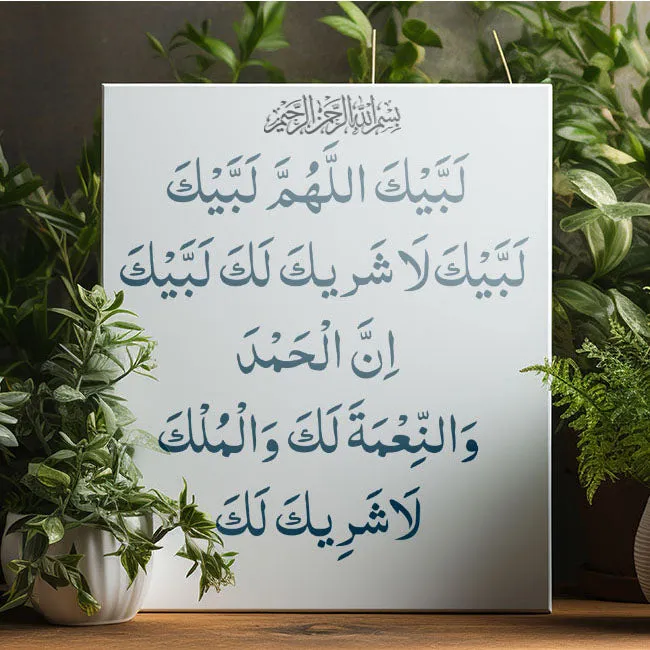 بِسْمِ اللهِ الرَّحْمٰنِ الرَّحِيْمِ
لَبَّيْكَ اللَّهُمَّ لَبَّيْكَ
لَبَّيْكَ لَا شَرِيكَ لَكَ لَبَّيْكَ
اِنَّ الْحَمْدَ
وَالنِّعْمَةَ لَكَ وَالْمُلْكَ
لَا شَرِيكَ لَكَ